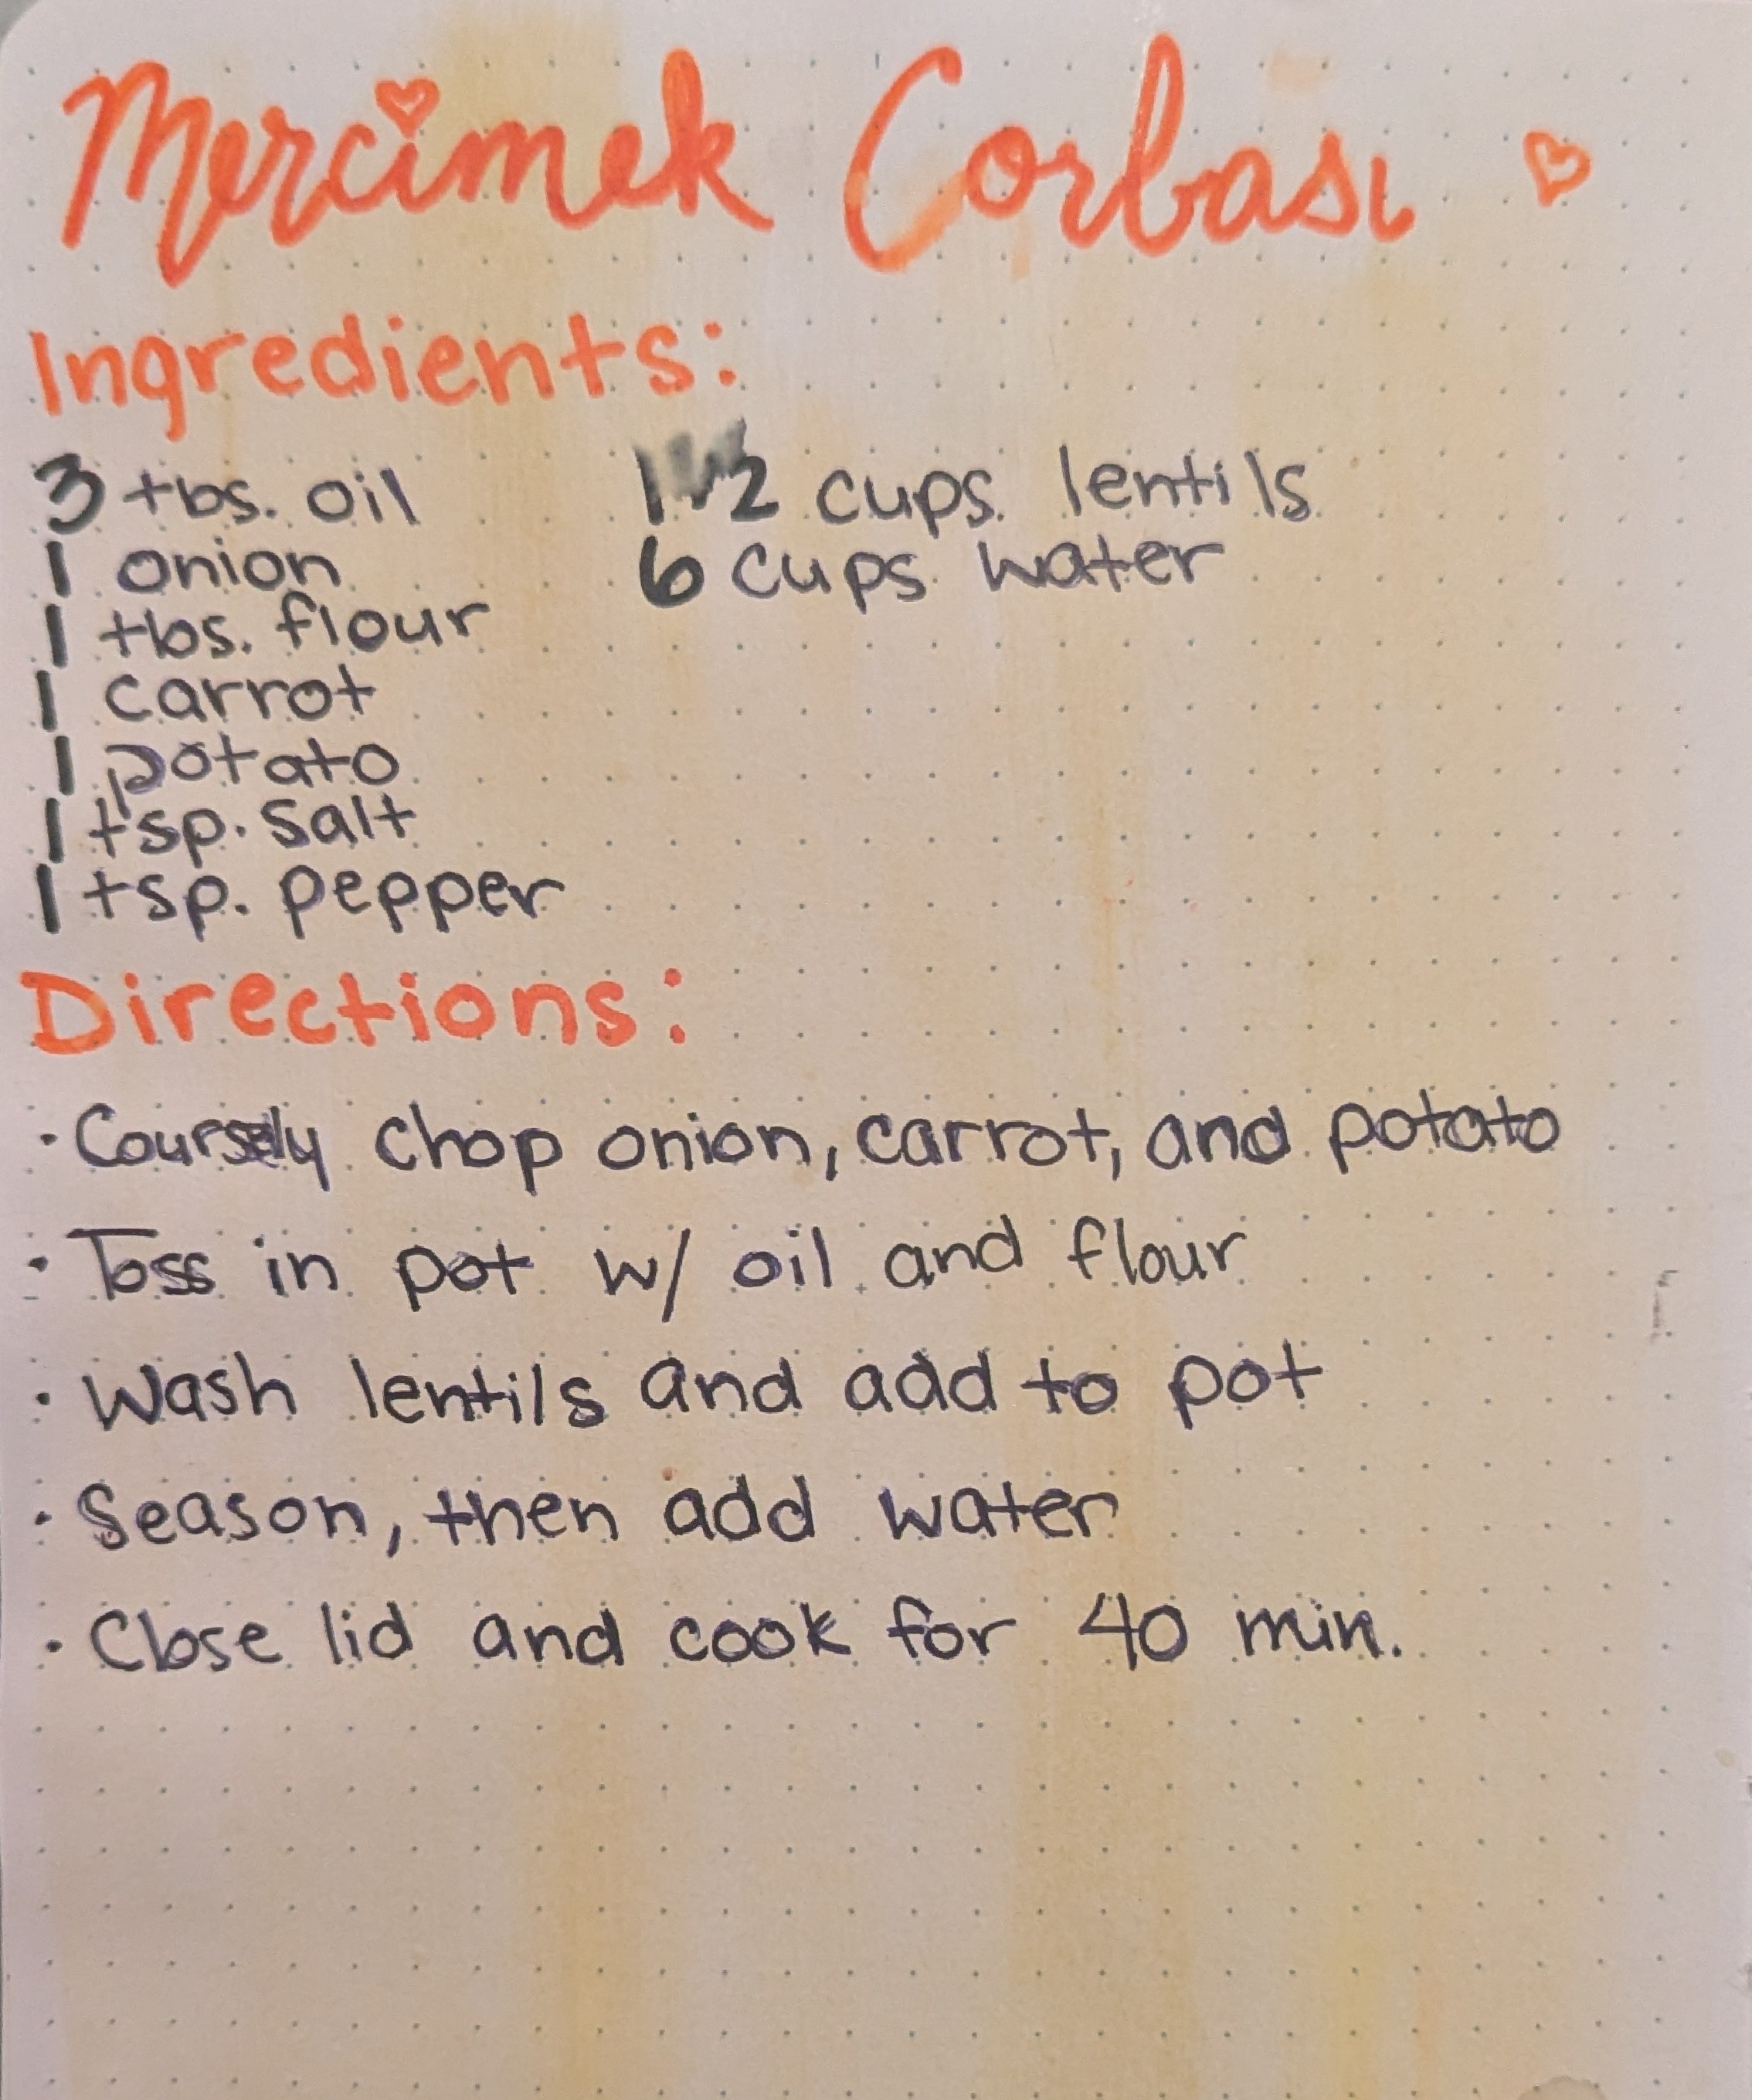 Mercimek Corbası
Ingredients:
3 tbs. oil
1 onion
1 tbs. flour
1 carrot
1 potato
1 tsp. salt
1 tsp. pepper
1 1/2 cups lentils
6 cups water
Directions:
· Coursely chop onion, carrot, and potato
· Toss in pot w/ oil and flour
· Wash lentils and add to pot
· Season, then add water
· Close lid and cook for 40 min.